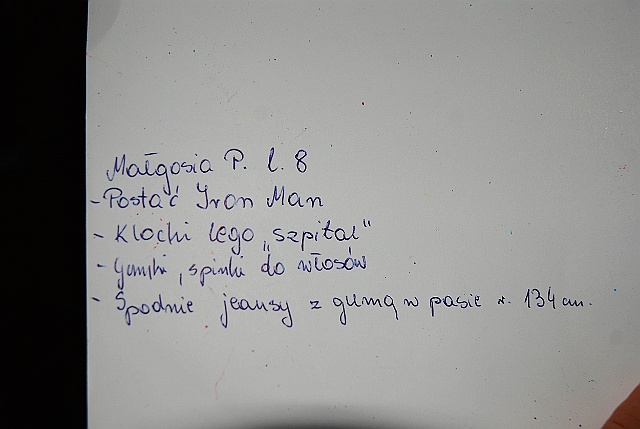 Małgosia P. l. 8
- Postać Iron Man
- Klocki lego „szpital"
- Gumki, spinki do włosów
- Spodnie jeansy z gumą w pasie r. 134 cm.